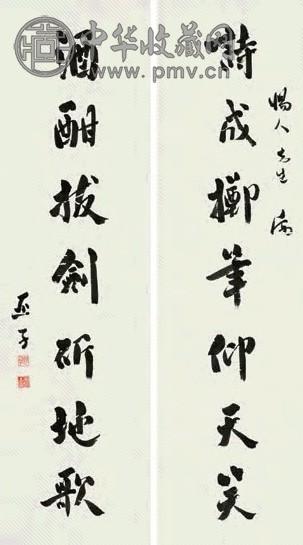 中华收藏网
www.pmv.cn
惕人先生
詩成擲筆仰天笑
酒酣拔劍斫地歌
亞子